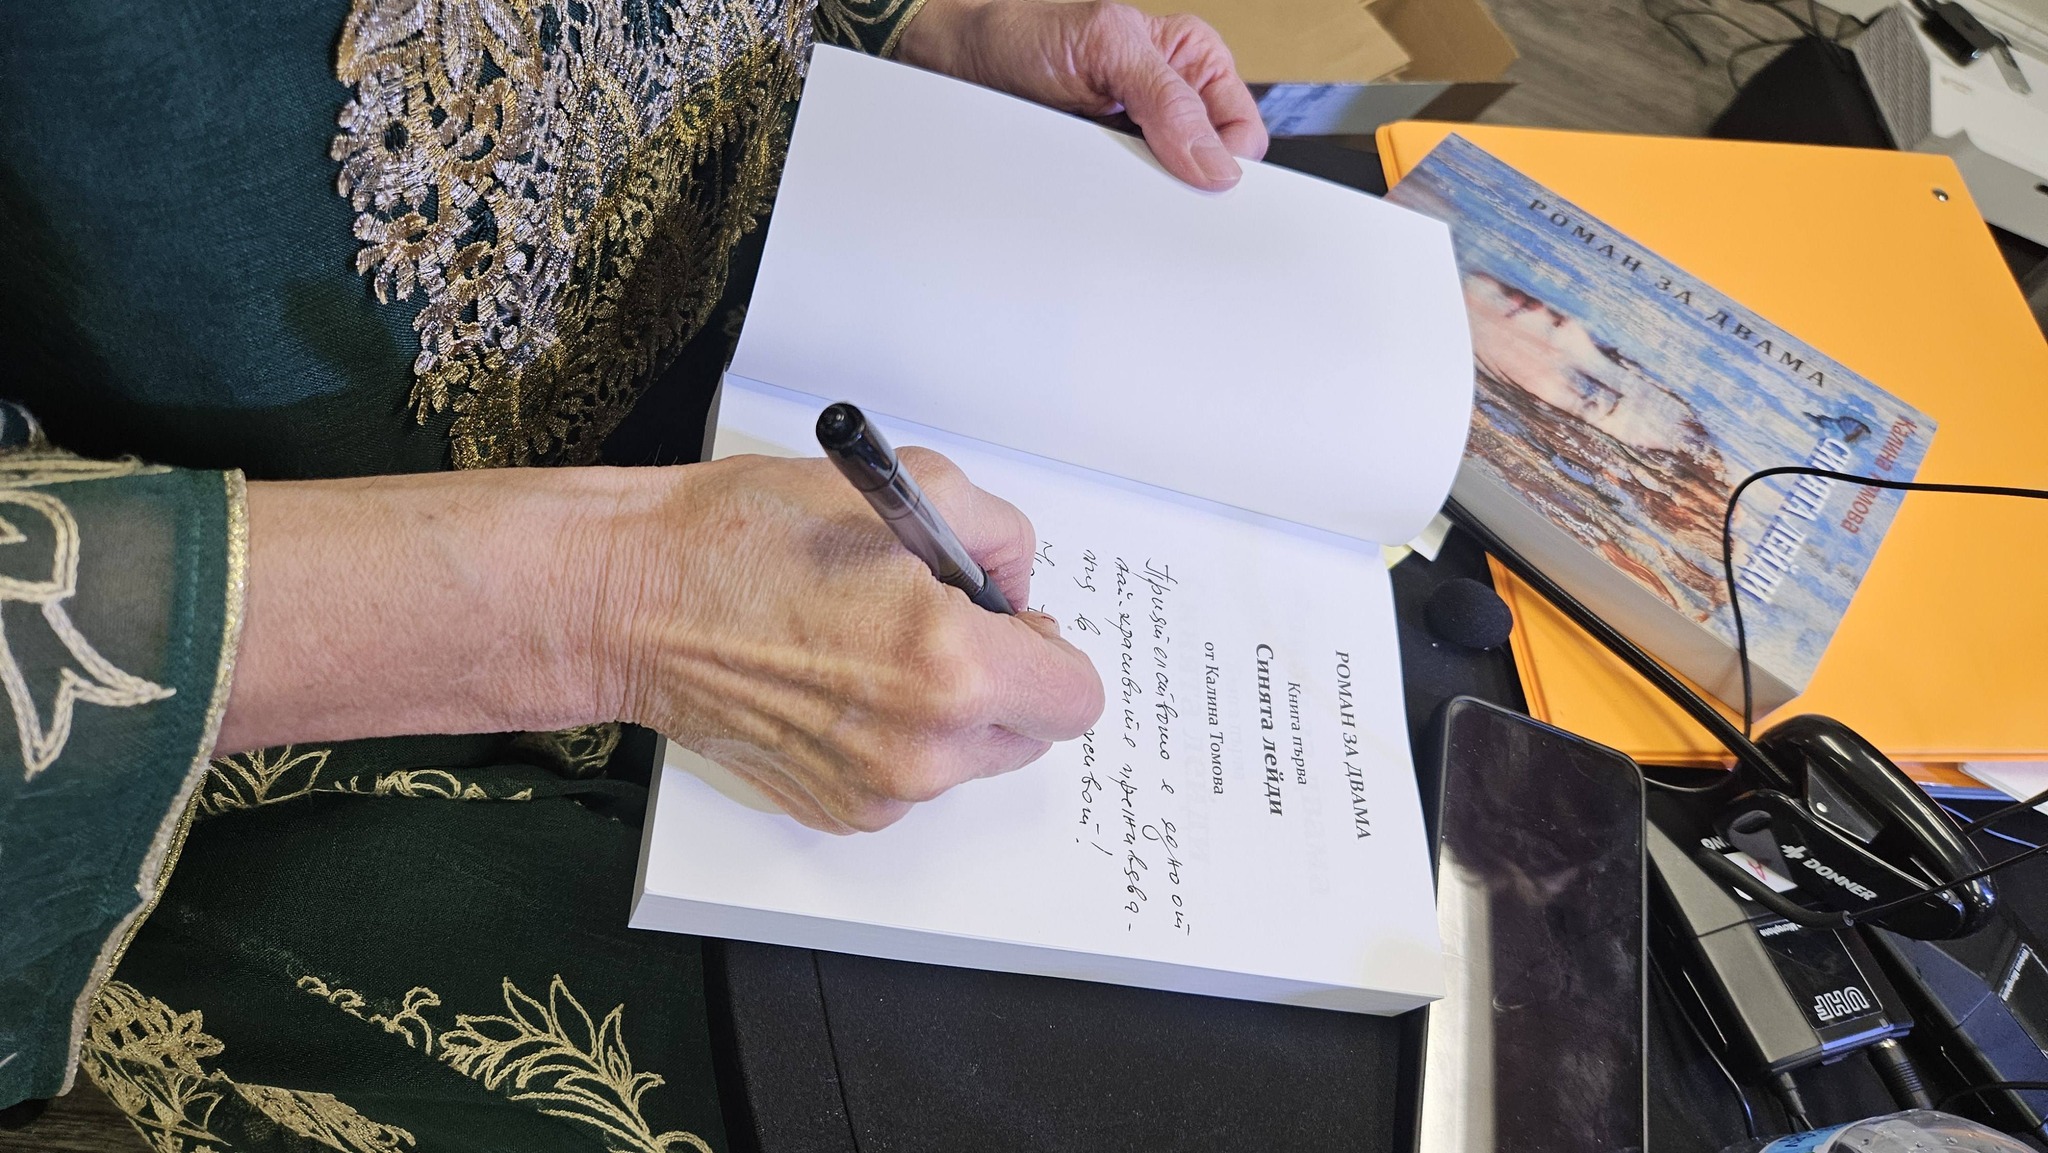 РОМАН ЗА ДВАМА
Книга първа
Синята лейди
от Калина Томова
Приятелството е едно от
най-красивите преживява-
ния в живота!
РОМАН ЗА ДВАМА
Калина Томова
СИНЯТА ЛЕЙДИ
DONNER
UHF
Microphone